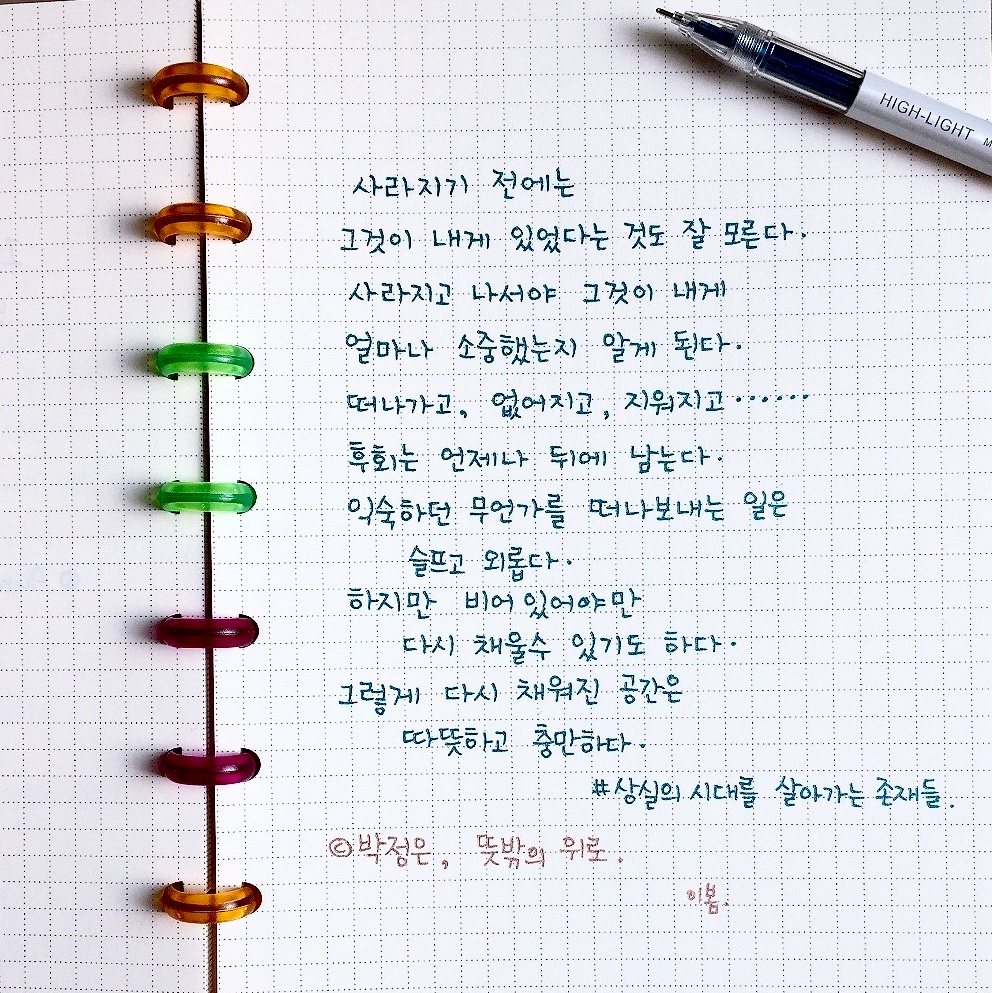 HIGH-LIGHT
사라지기 전에는
그것이 내게 있었다는 것도 잘 모른다.
사라지고 나서야 그것이 내게
얼마나 소중했는지 알게 된다.
떠나가고, 없어지고, 지워지고……
후회는 언제나 뒤에 남는다.
익숙하던 무언가를 떠나보내는 일은
슬프고 외롭다.
하지만 비어있어야만
다시 채울수 있기도 하다.
그렇게 다시 채워진 공간은
따뜻하고 충만하다.
#상실의 시대를 살아가는 존재들.
©박정은, 뜻밖의 위로.
이봄.